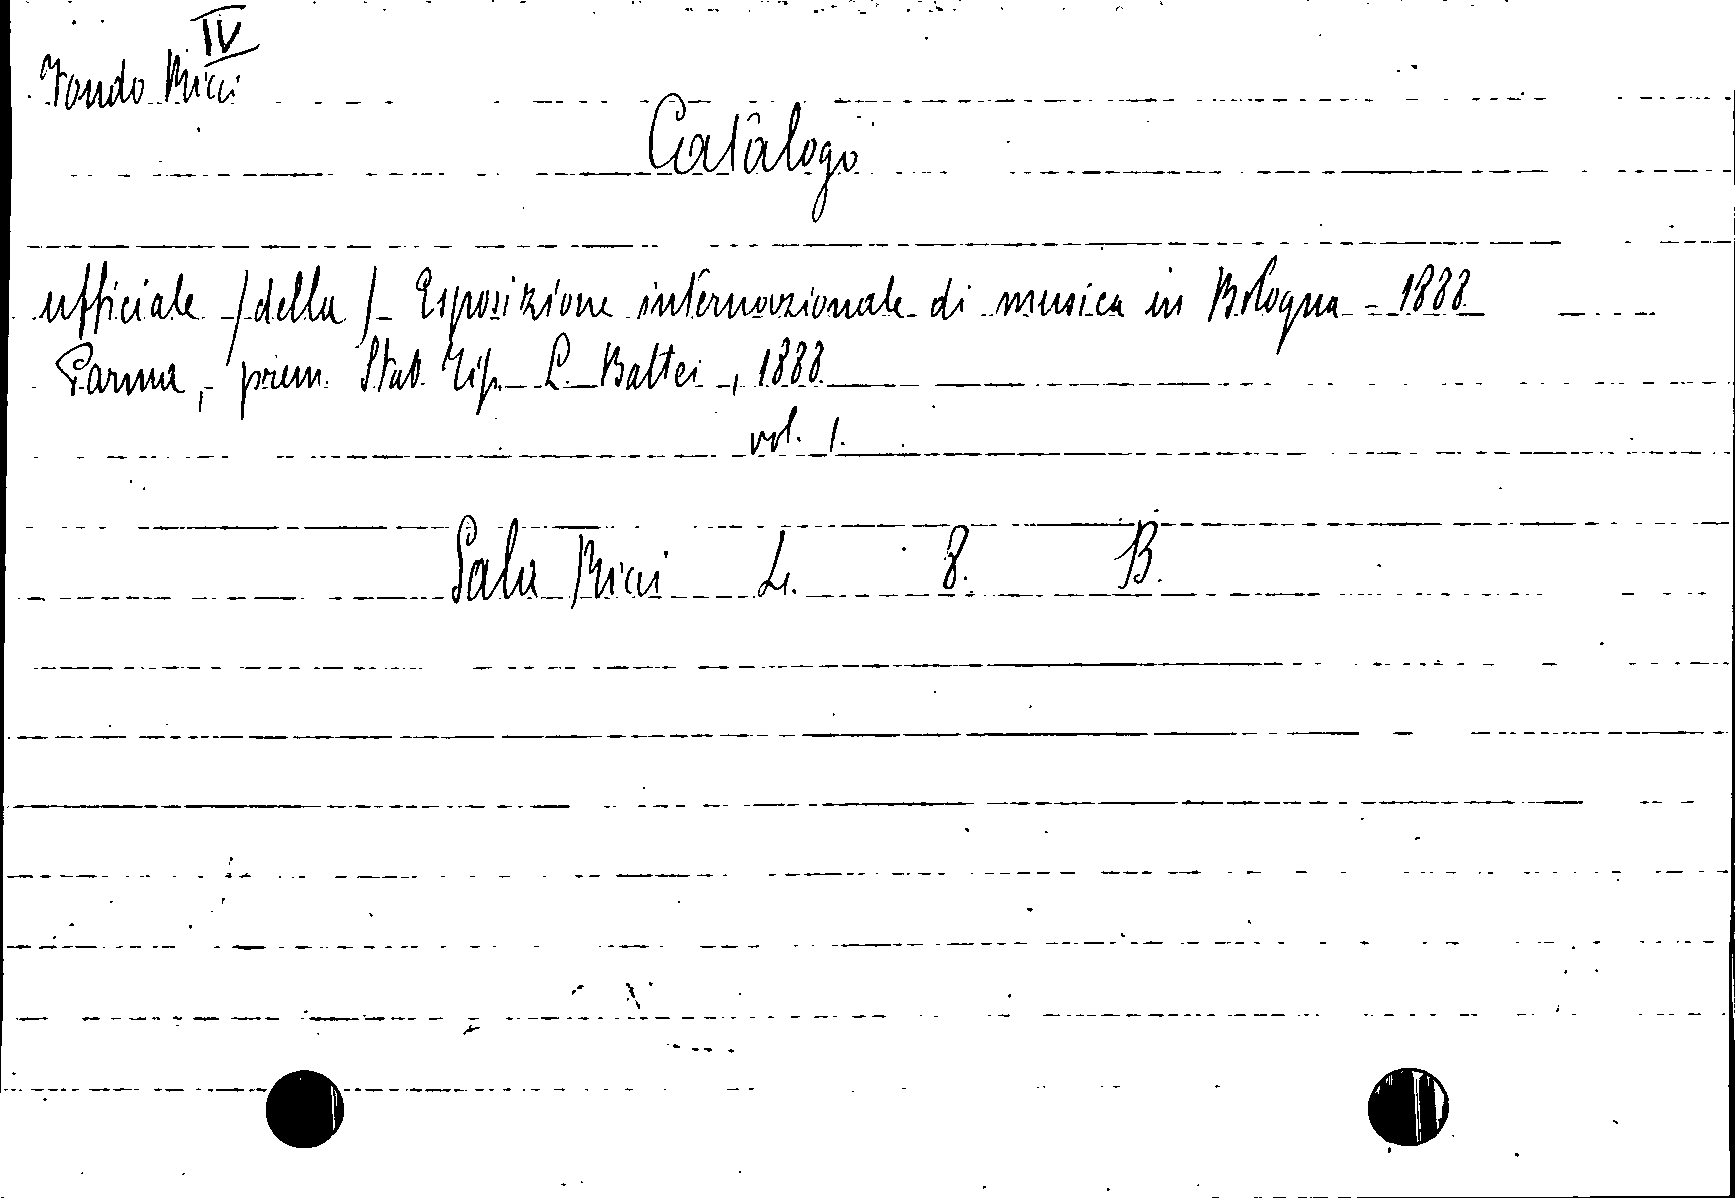 IV
Fondo Ricci
Catalogo
ufficiale / della / Esposizione internazionale di musica in Bologna - 1888
Parma, prem. Stab. Tip. L. Battei, 1888
vol. 1.
Sala Ricci L. 8. B.